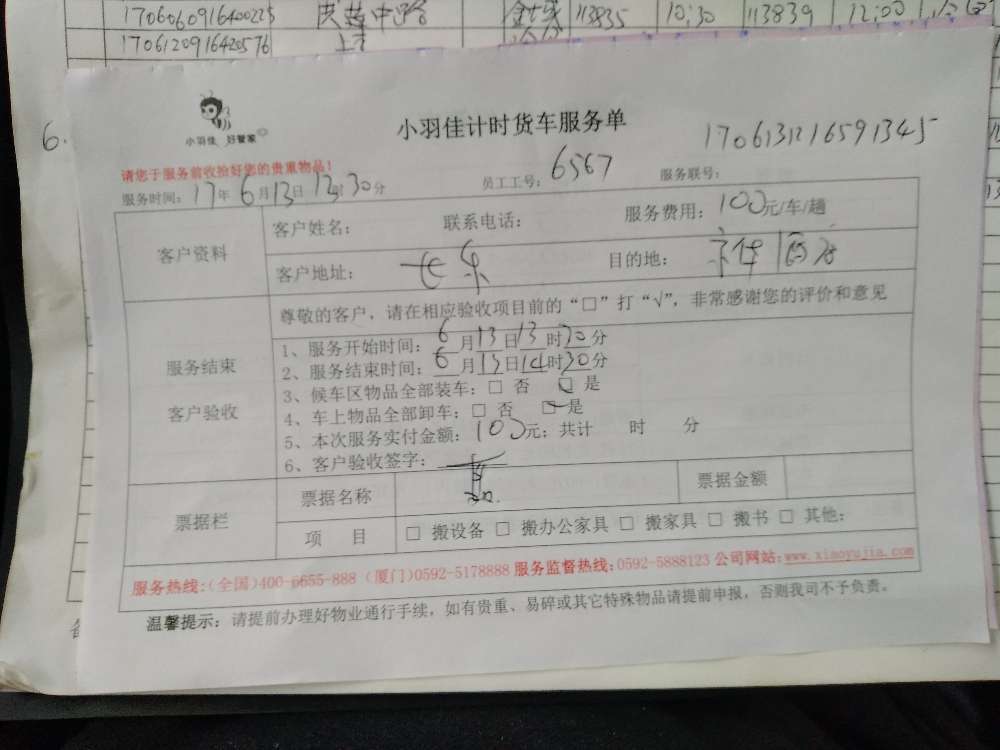 1706060916400225 113835 10:30 113839 12:00
1706120916420576
6.
小羽佳 好管家
小羽佳计时货车服务单
1706131216591345
请您于服务前收拾好您的贵重物品!
服务时间: 17年 6月13日 13时30分 员工工号: 6567 服务联号:
客户资料
客户姓名: 联系电话: 服务费用: 100元/车/趟
客户地址: 目的地:
服务结束
客户验收
尊敬的客户, 请在相应验收项目前的“□”打“√”, 非常感谢您的评价和意见
1、服务开始时间: 6月13日13时30分
2、服务结束时间: 6月13日14时30分
3、候车区物品全部装车: □ 否 □ 是
4、车上物品全部卸车: □ 否 □ 是
5、本次服务实付金额: 100元; 共计 时 分
6、客户验收签字:
票据栏
票据名称 票据金额
项 目 □ 搬设备 □ 搬办公家具 □ 搬家具 □ 搬书 □ 其他:
服务热线:(全国)400-6655-888 (厦门)0592-5178888 服务监督热线:0592-5888123 公司网站:www.xiaoyujia.com
温馨提示: 请提前办理好物业通行手续, 如有贵重、易碎或其它特殊物品请提前申报, 否则我司不予负责。